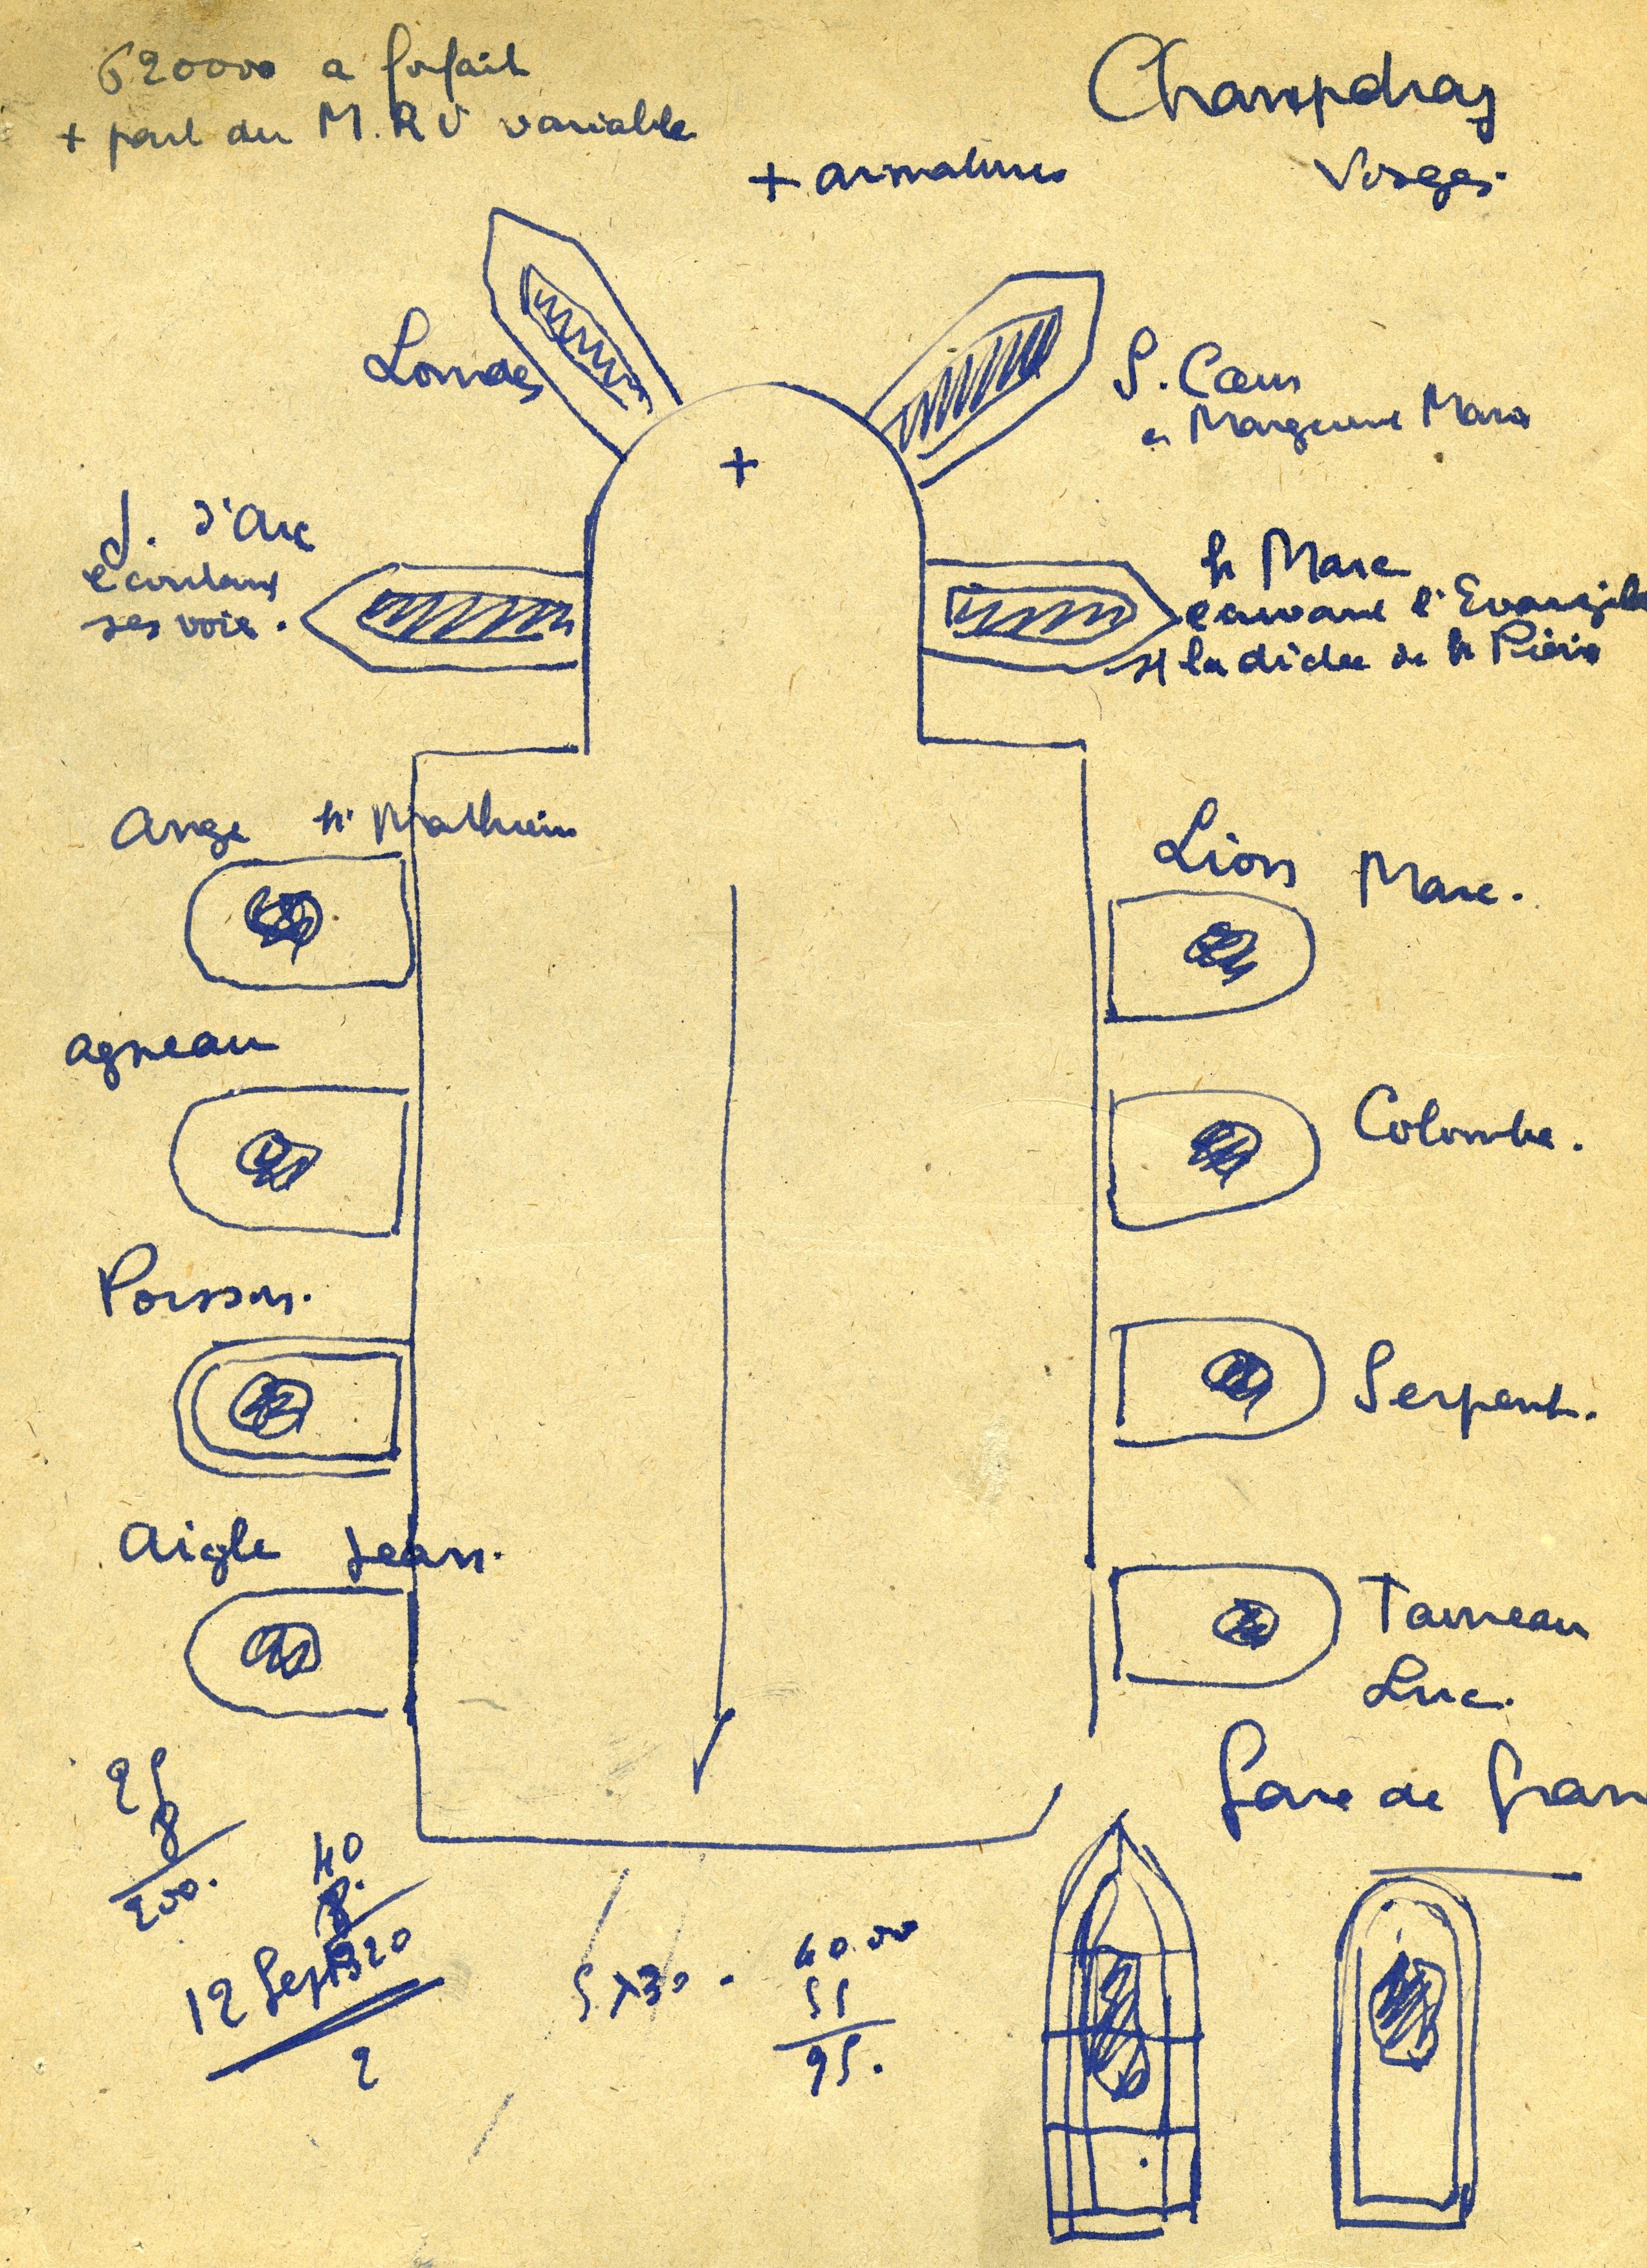 620000 a forfait
+ part du M.R.U variable
Champdray
Vosges.
+ armatures
Lourdes
S. Cœur
et Marguerite Marie
J. d'Arc
écoutant
ses voix.
St Marc
écrivant l'Evangile
s/ la dictée de St Pierre
Ange St Mathieu
Lion Marc.
agneau
Colombe.
Poisson.
Serpent.
Aigle Jean.
Taureau
Luc.
Gare de Gran
25
8
200.
40
8.
320
12 Sept
2
5 x 30.
40.00
55
95.